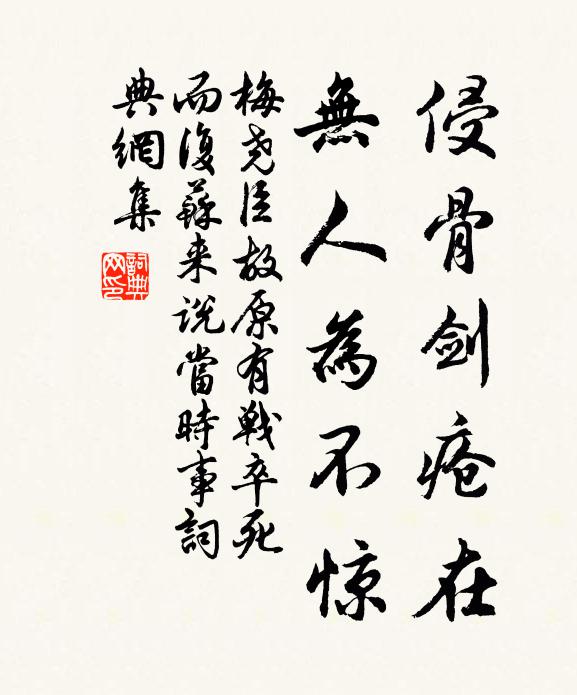 侵骨剑疮在
無人為不惊
梅尧臣故原有戦卒死
而復蘇来说當時事詞
典網集
詞典网印